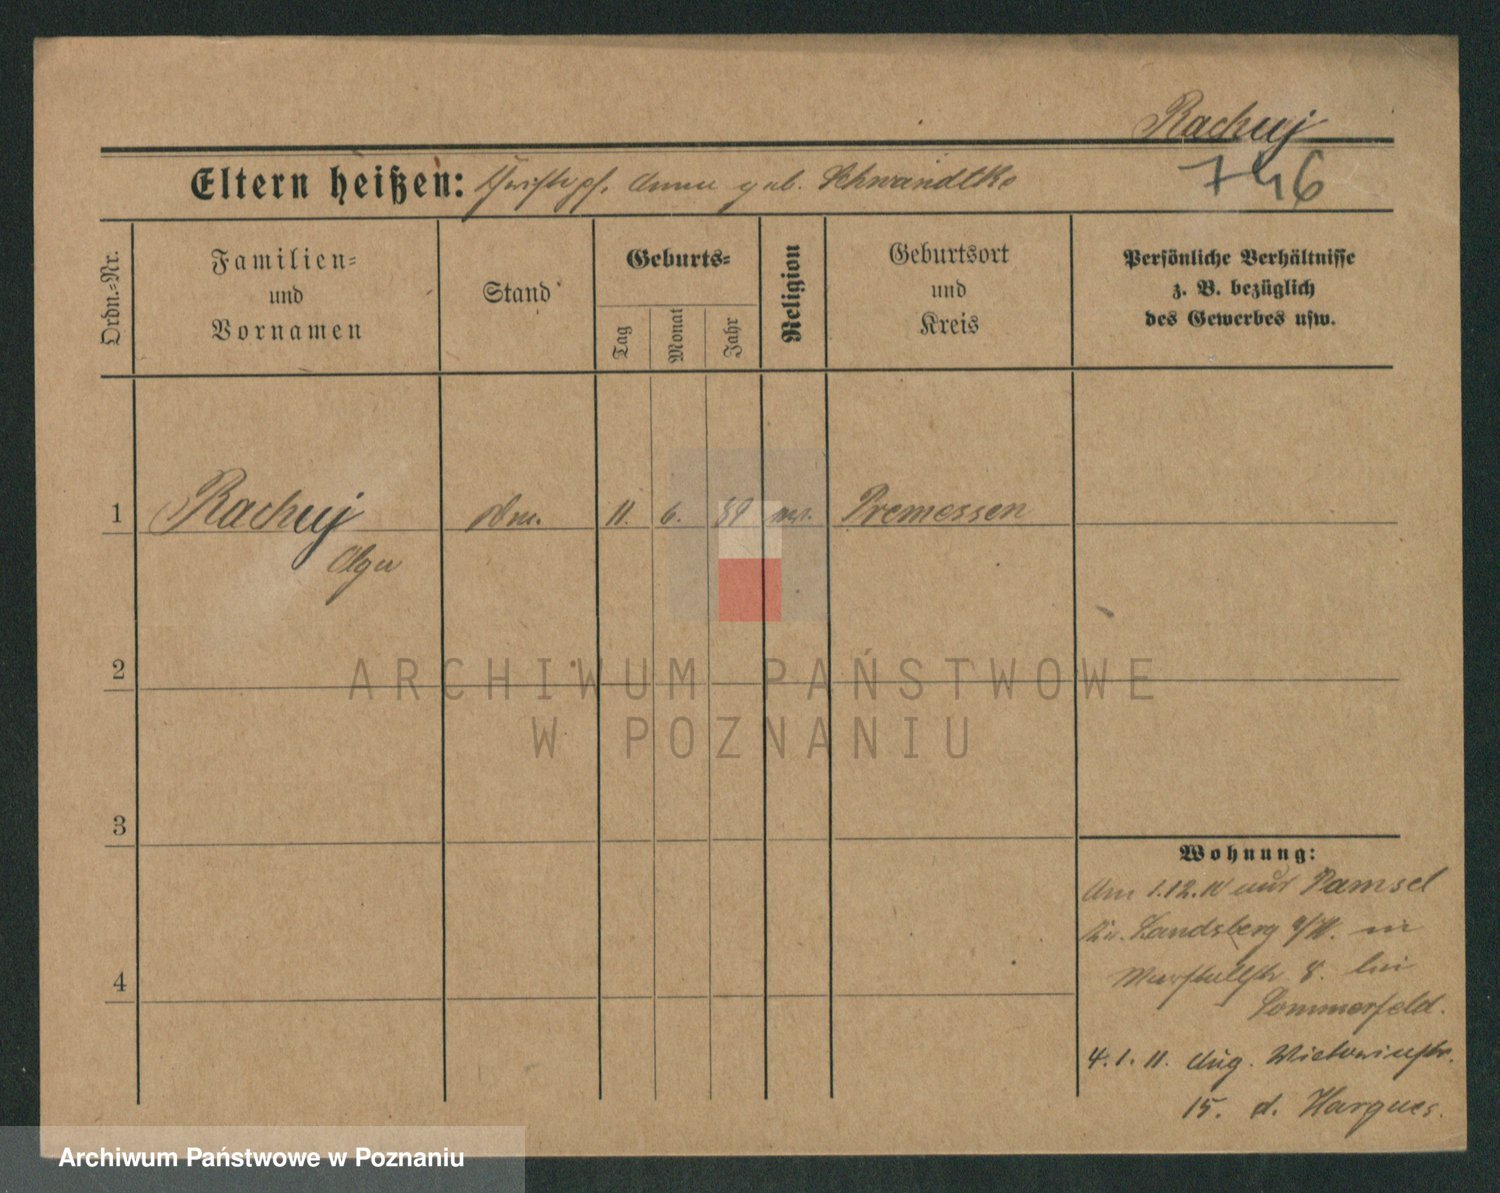 Rachuj
746
Eltern heißen: Christoph, Anna geb. Schwandtke
Ordn.-Nr.
Familien-
und
Vornamen
Stand
Geburts-
Tag
Monat
Jahr
Religion
Geburtsort
und
Kreis
Persönliche Verhältnisse
z. B. bezüglich
des Gewerbes usw.
1
Rachuj
Olga
11. 6. 89
Premessen
2
3
4
Wohnung:
Am 1.12.10 aus
Landsberg a/W. in
8. bei
Sommerfeld.
4.1.11. Aug. Victoriastr.
15. d.
ARCHIWUM PAŃSTWOWE
W POZNANIU
Archiwum Państwowe w Poznaniu